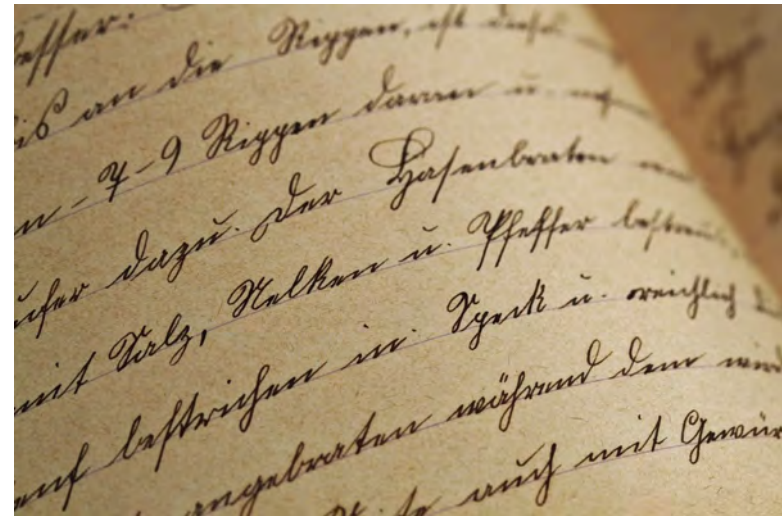 an die Rippen, ist
7-9 Rippen daran u.
dazu. Der Hasenbraten
mit Salz, Nelken u. Pfeffer bestreut,
bestrichen in Speck u. reichlich
angebraten während dem wird
auch mit Gewür